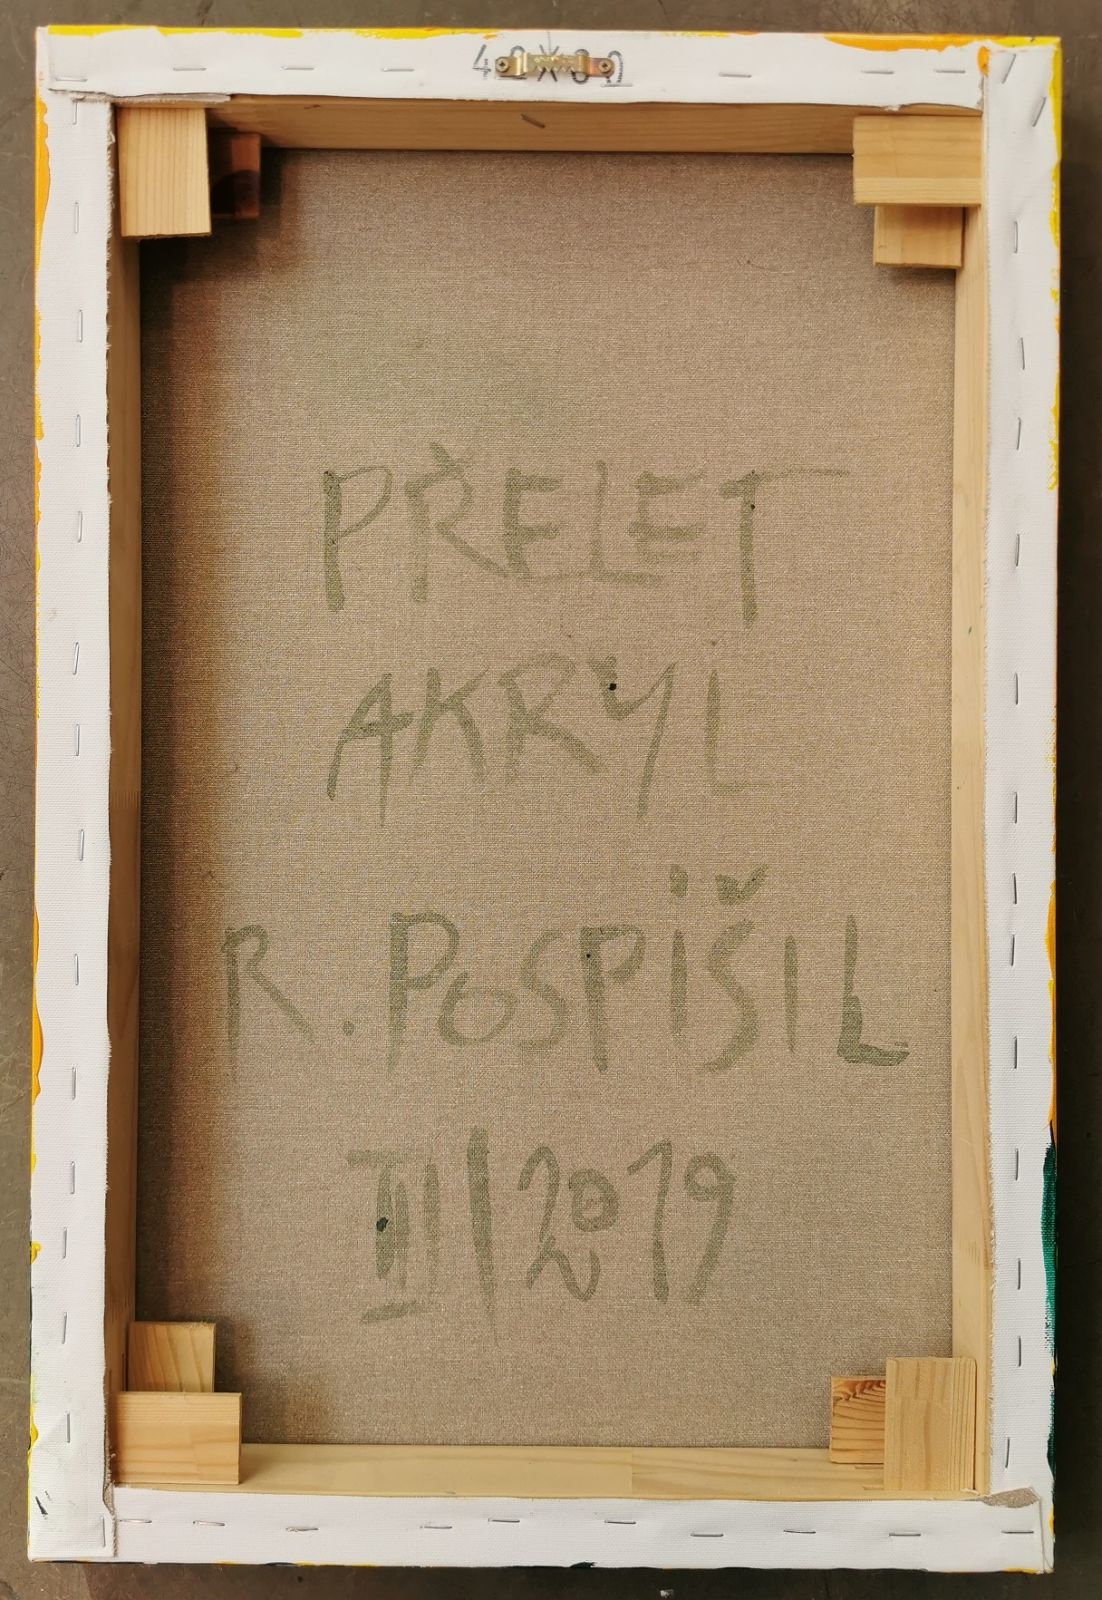 PŘELET
AKRYL
R. POSPÍŠIL
III/2019